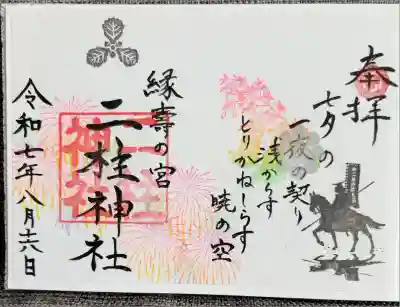 奉拝
七夕の
一夜の契り
浅からす
とりかねしらす
暁の空
縁壽の宮
二柱神社
令和七年八月六日